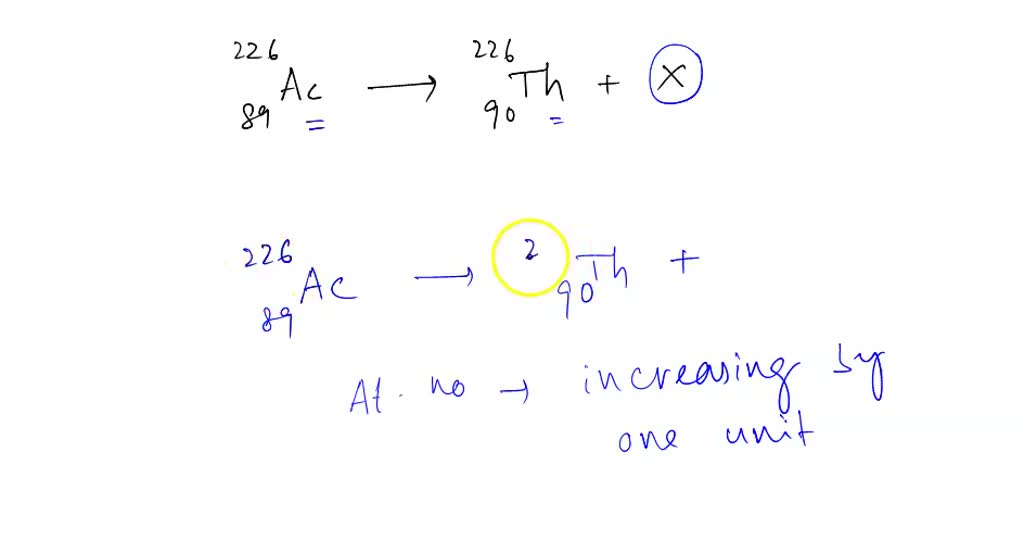 226 226
Ac → Th + X
89 90
226 2
Ac → Th +
89 90
At. no → increasing by
one unit